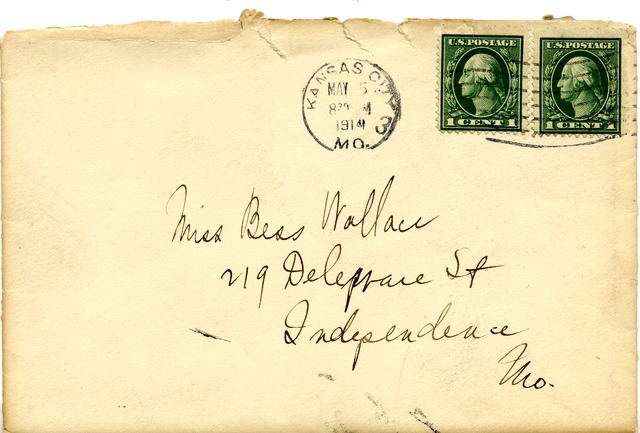 U.S. POSTAGE
U.S. POSTAGE
1 CENT 1
1 CENT 1
KANSAS CITY
MAY 5
8 30 M
1914
3
MO.
Miss Bess Wallace
219 Delaware St
Independence
Mo.